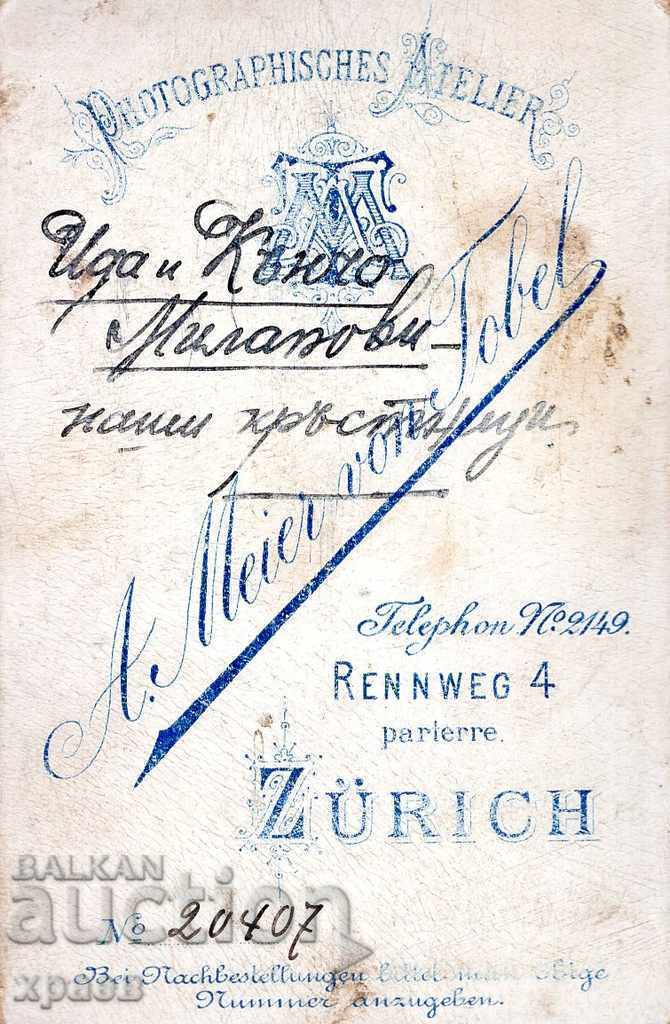 PHOTOGRAPHISCHES ATELIER
Ида и Кънчо
Миланови –
наши кръстници
A. Meier von Tobel
Telephon No. 2149.
RENNWEG 4
parterre.
ZÜRICH
BALKAN
auction
No 20407
Bei Nachbestellungen bittet man obige
Nummer anzugeben.
храбв